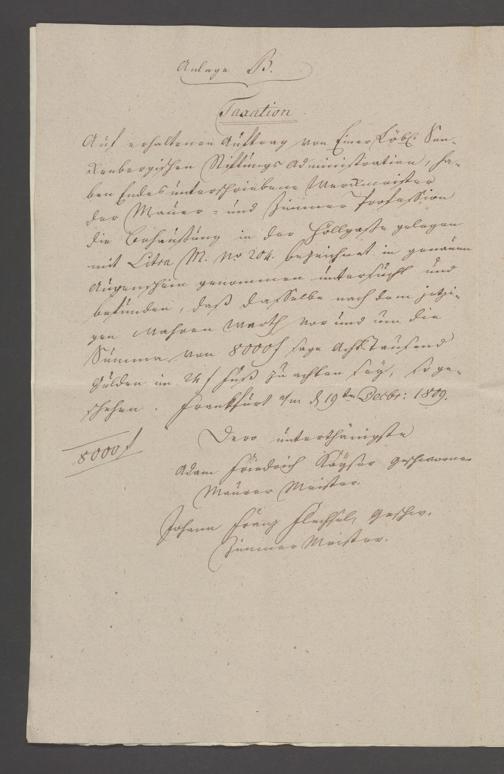 Anlage B.
Taxation
Auf erhaltenen Auftrag von Einer Löbl. Sen-
kenbergischen Stiftungs Administration, ha-
ben Endes unterschriebene Werckmeister
der Maurer- und Zimmer Profession
die Behaußung in der Höllgaße gelegen
mit Litra M. No 204. bezeichnet in genauen
Augenschein genommen untersucht und
befunden, daß dasselbe nach dem jetzi-
gen wahren Werth vor und um die
Summa von 8000 f sage Achttausend
Gulden im 24 f Fuß zu achten sey, so ge-
schehen. Franckfurt a/m d 19ten Decbr: 1809.
8000 f
Dero unterthänigste
Adam Friedrich Kayser geschworner
Maurer Meister.
Johann Franz Flechsel, Geschw.
Zimmer Meister.